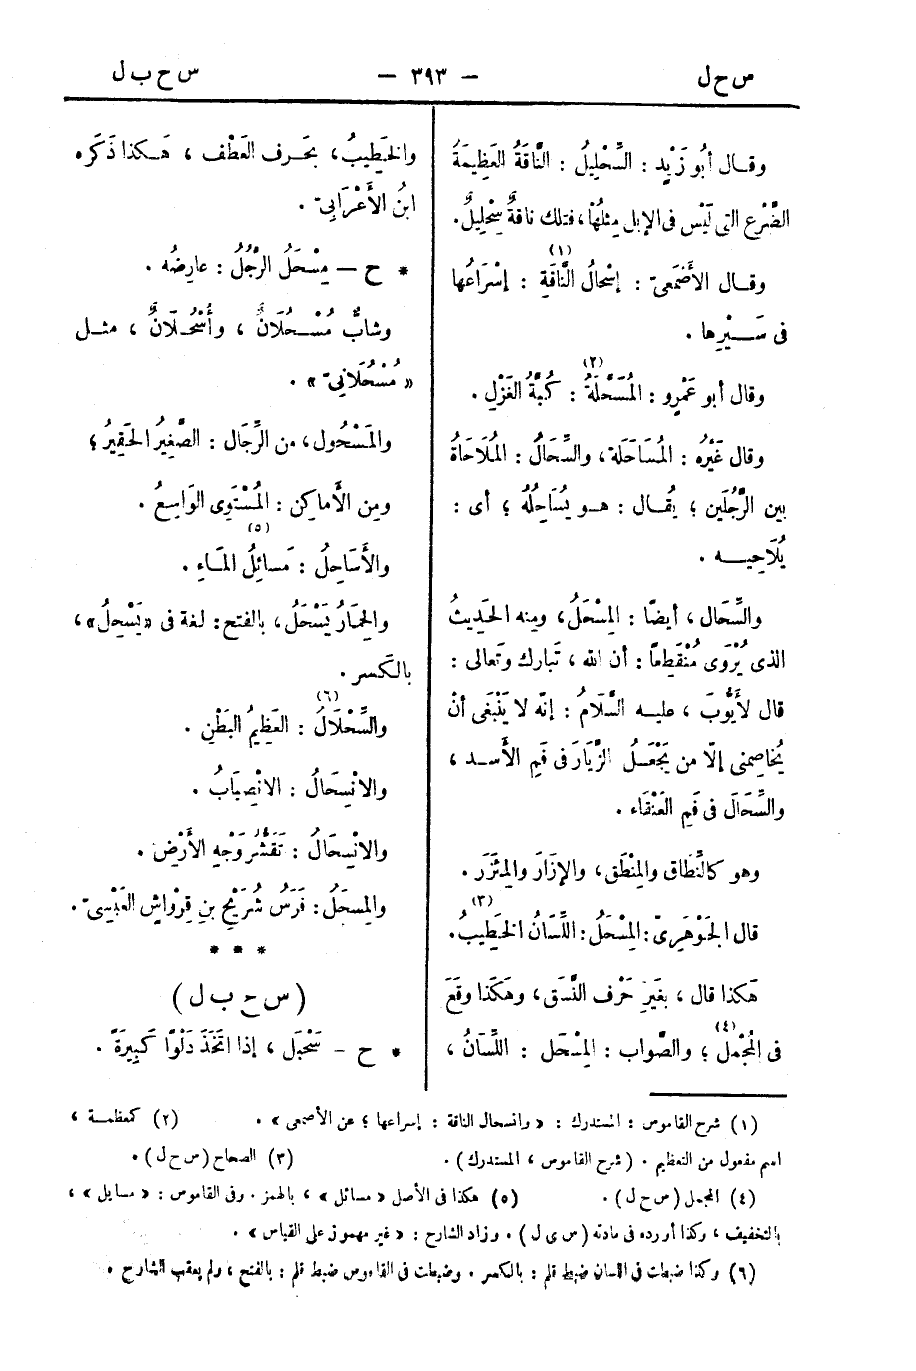 س ح ل
— ٣٩٣ —
س ح ب ل
وقال أبُو زَيْدٍ : السِّحْلِيلُ : النَّاقَةُ العَظِيمَةُ
الضَّرْعِ التي لَيْس في الإبل مِثلُهَا، فتلك ناقةٌ سِحْلِيلٌ.
وقال الأَصْمَعِيّ : إسْحالُ النَّاقَةِ (١) : إسْرَاعُها
في سَيْرِها .
وقال أبو عَمْرٍو : المُسَحَّلَةُ (٢) : كُبَّةُ الغَزْلِ .
وقال غَيْرُه : المُسَاحَلَة، والسِّحَالُ : المُلَاحَاةُ
بين الرَّجُلَين ؛ يُقال : هو يُسَاحِلُهُ ؛ أى :
يُلَاحِيه .
والسِّحَال ، أيضًا : المِسْحَلُ، ومنه الحَدِيثُ
الذى يُرْوَى مُنْقَطِعاً : أن الله ، تَبارك وتَعالى :
قال لأَيُّوبَ ، عليه السَّلَامُ : إنّه لا يَنْبَغى أنْ
يُخاصِمنى إلّا من يَجْعَلُ الزِّيَارَ فى فَمِ الأَسد ،
والسِّحَالَ فى فَمِ العَنْقَاء .
وهو كالنِّطَاق والمِنْطَق، والإزَارَ والمِئْزَر .
قال الجَوْهَرِىّ : المِسْحَلُ : اللِّسَانُ الخَطِيبُ (٣).
هَكذا قال ، بغَيرِ حَرْف النَّسَق، وهَكَذا وقَعَ
فى المُجْمَلِ (٤) ؛ والصَّواب : المِسْحَل : اللِّسَانُ ،
والخَطِيبُ، بحَرف العَطْف ، هَكذا ذَكَره
ابنُ الأَعْرَابِىّ .
* ح — مِسْحَلُ الرَّجُلُ : عارِضُه .
وشابٌّ مُسْحُلَانٌ ، وأُسْحُلَانٌ ، مثل
« مُسْحُلَانِىّ » .
والمَسْحُول، من الرِّجَال : الصَّغِيرُ الحَقِيرُ ؛
ومن الأَماكِن : المُسْتَوِى الوَاسِعُ .
والأَسَاحِلُ : مَسائِلُ (٥) المَاءِ .
والحِمَارُ يَسْحَلُ، بالفتح : لغة فى «يَسْحِلُ» ،
بالكَسر .
والسِّحْلَالُ (٦) : العَظِيمُ البَطْنِ .
والانْسِحَالُ : الانْصِبَابُ .
والانْسِحَالُ : تَقَشُّرُ وَجْهِ الأَرْضِ .
والمِسحَلُ : فَرَسُ شُرَيْحِ بنِ قِرْوَاشٍ العَبْسِىّ .
* * *
( س ح ب ل )
* ح – سَحْبَل ، إذا اتَّخَذَ دَلْوًا كَبِيرَةً .
(١) شرح القاموس : المستدرك : « وانسحال الناقة : إسراعها ؛ عن الأصمعى » . (٢) كمعظمة ،
اسم مفعول من التعظيم . ( شرح القاموس ، المستدرك ) . (٣) الصحاح (س ح ل) .
(٤) المجمل (س ح ل) . (٥) هكذا فى الأصل « مسائل » ، بالهمز . وفى القاموس : « مسايل » ،
بالتخفيف ، وكذا أورده فى مادته ( س ى ل ) . وزاد الشارح : « غير مهموز على القياس » .
(٦) وكذا ضبطت فى اللسان ضبط قلم : بالكسر . وضبطت فى القاموس ضبط قلم : بالفتح ، ولم يعقب الشارح .